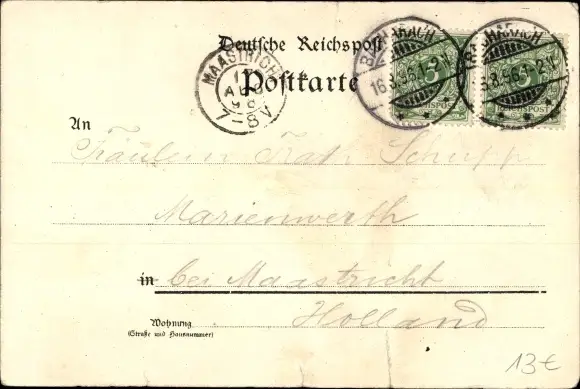 Deutsche Reichspost
Postkarte
MAASTRICHT
AUG
96
7-8V
BACHARACH
16.8.96
BACHARACH
8.96
5
5
REICHSPOST
REICHSPOST
An
Fräulein Kath Schupp
Marienwerth
in bei Maastricht
Holland
Wohnung
(Straße und Hausnummer)
13€